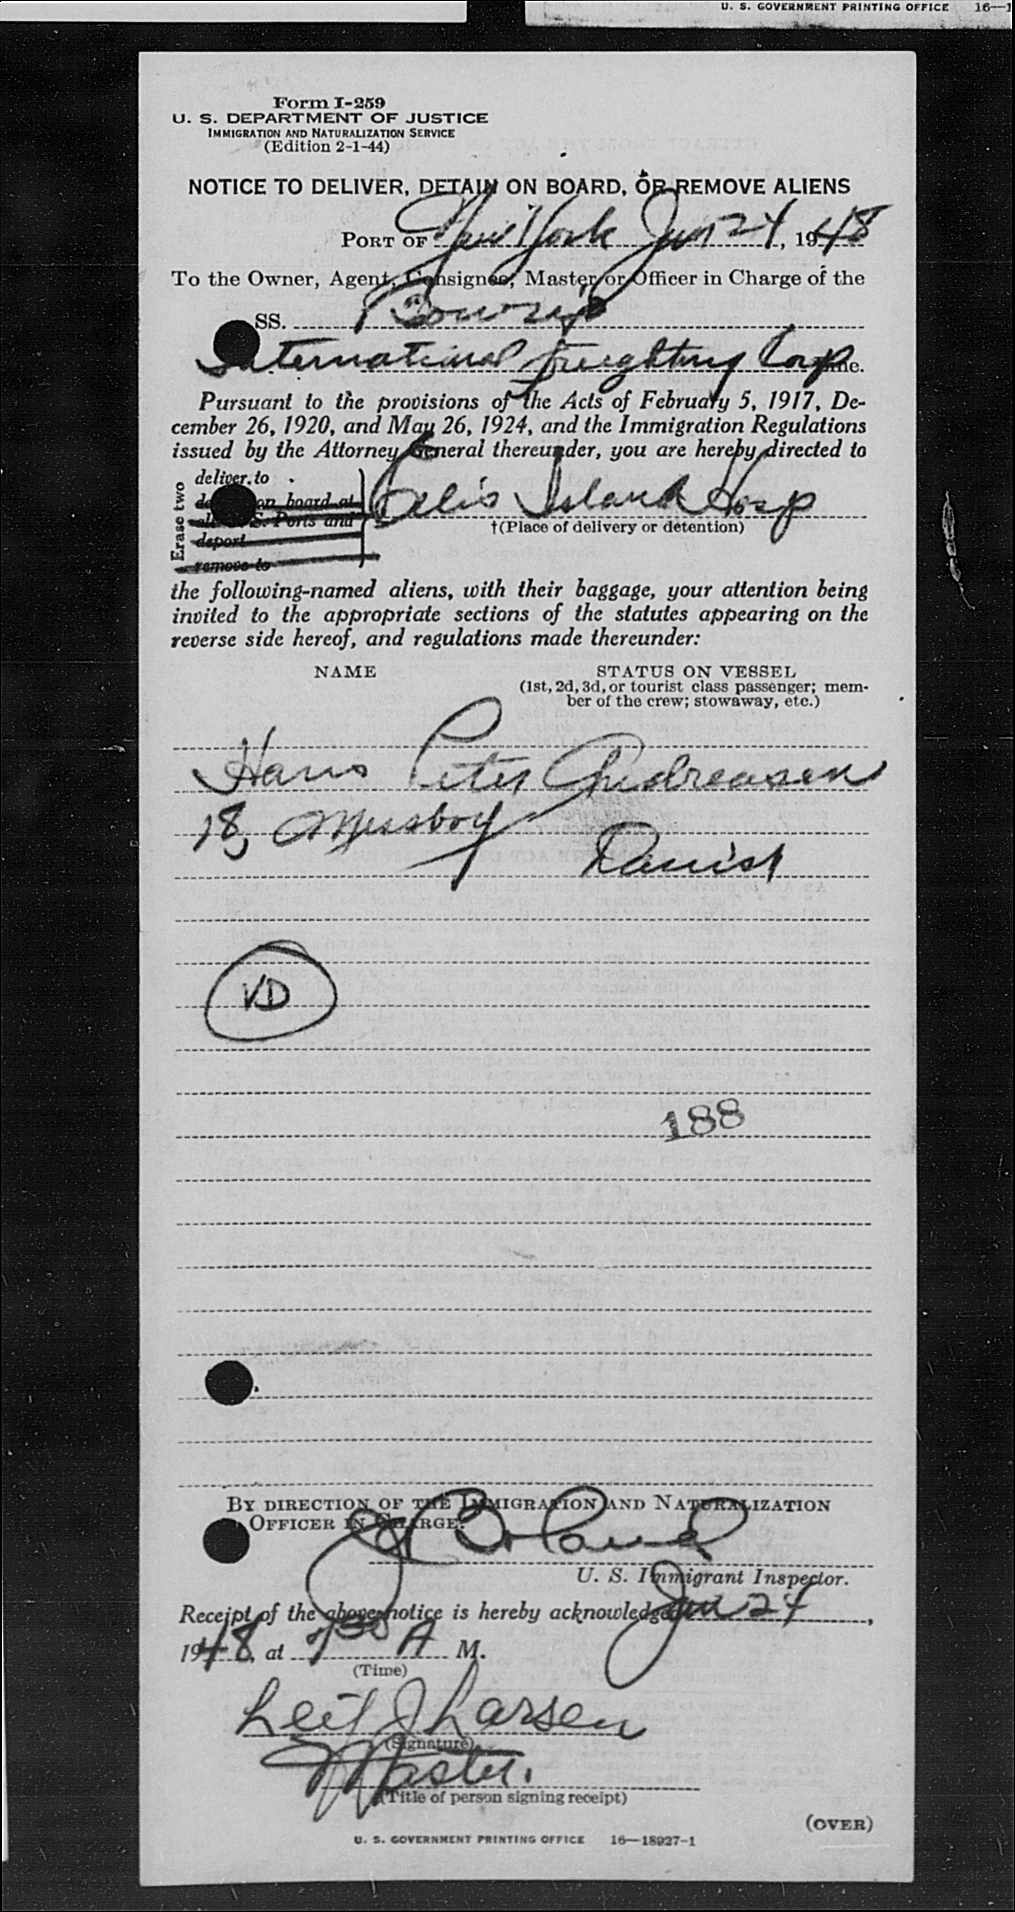 U. S. GOVERNMENT PRINTING OFFICE 16—1
Form I-259
U. S. DEPARTMENT OF JUSTICE
IMMIGRATION AND NATURALIZATION SERVICE
(Edition 2-1-44)
NOTICE TO DELIVER, DETAIN ON BOARD, OR REMOVE ALIENS
PORT OF New York Jan 24, 1948
To the Owner, Agent, Consignee, Master or Officer in Charge of the
SS.
International Freighting Corp ne.
Pursuant to the provisions of the Acts of February 5, 1917, De-
cember 26, 1920, and May 26, 1924, and the Immigration Regulations
issued by the Attorney General thereunder, you are hereby directed to
Erase two
deliver to
on board at
S. Ports and
deport
remove to
Ellis Island Hosp
†(Place of delivery or detention)
the following-named aliens, with their baggage, your attention being
invited to the appropriate sections of the statutes appearing on the
reverse side hereof, and regulations made thereunder:
NAME STATUS ON VESSEL
(1st, 2d, 3d, or tourist class passenger; mem-
ber of the crew; stowaway, etc.)
Hans Peter Andreasen
18, Messboy
Danish
VD
188
BY DIRECTION OF THE IMMIGRATION AND NATURALIZATION
OFFICER IN CHARGE:
Boland
U. S. Immigrant Inspector.
Receipt of the above notice is hereby acknowledged Jan 24,
1948, at 7 30 A M.
(Time)
Leif J Larsen
(Signature)
Master.
(Title of person signing receipt)
(OVER)
U. S. GOVERNMENT PRINTING OFFICE 16—18927-1